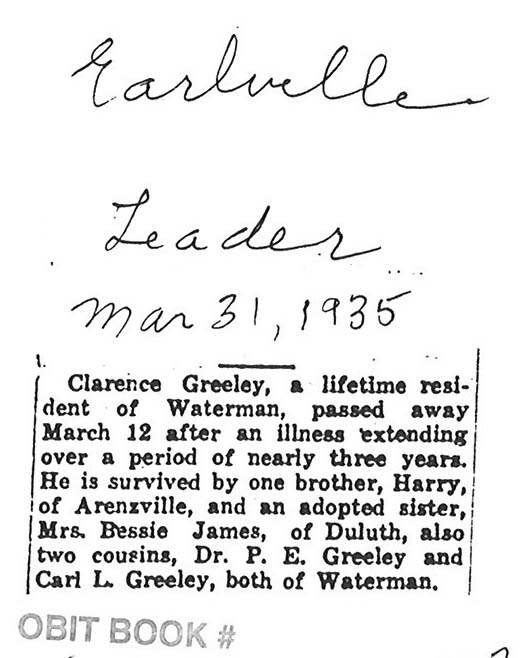 Earlville
Leader
Mar 31, 1935
Clarence Greeley, a lifetime resi-
dent of Waterman, passed away
March 12 after an illness extending
over a period of nearly three years.
He is survived by one brother, Harry,
of Arenzville, and an adopted sister,
Mrs. Bessie James, of Duluth, also
two cousins, Dr. P. E. Greeley and
Carl L. Greeley, both of Waterman.
OBIT BOOK #